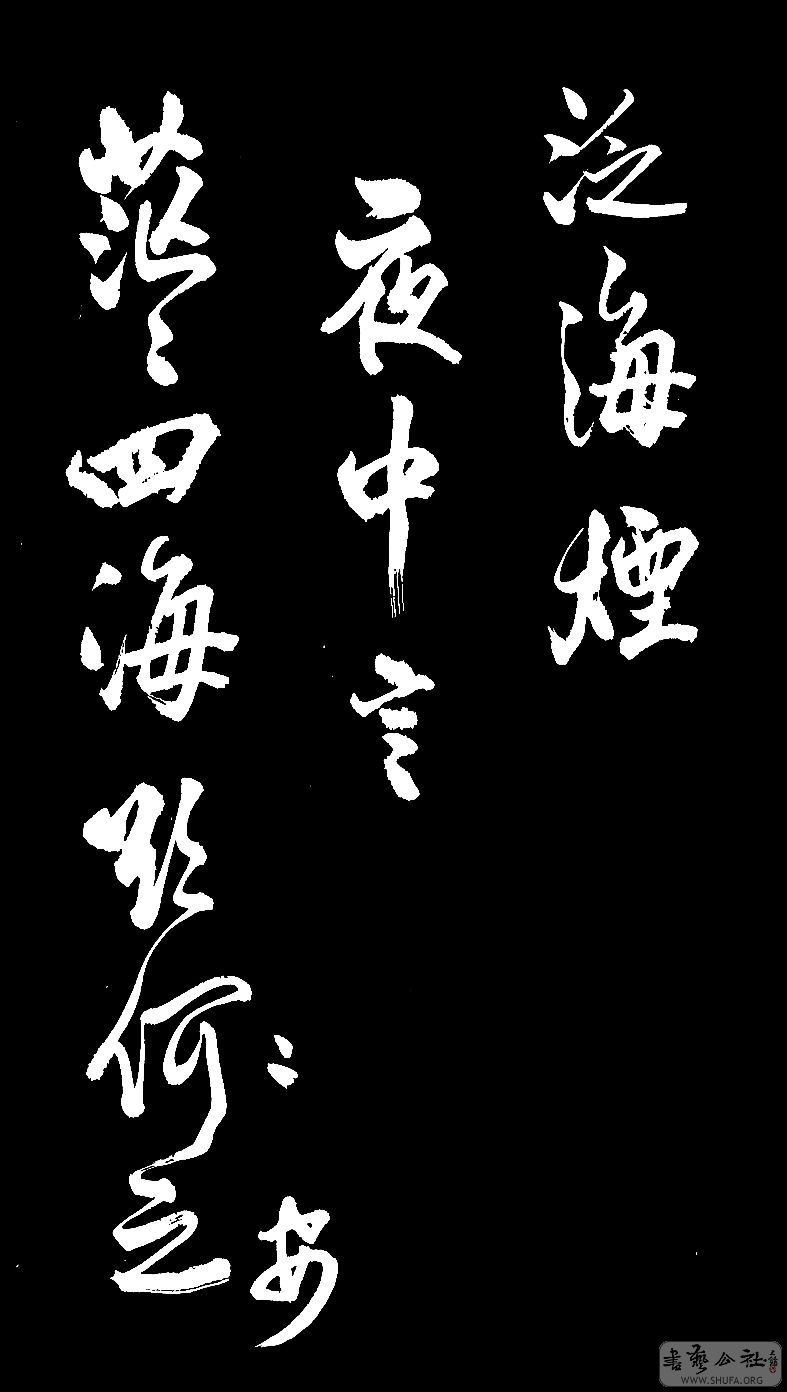 泛海煙
夜中言
茫〻四海欲何之
安
書藝公社
WWW.SHUFA.ORG